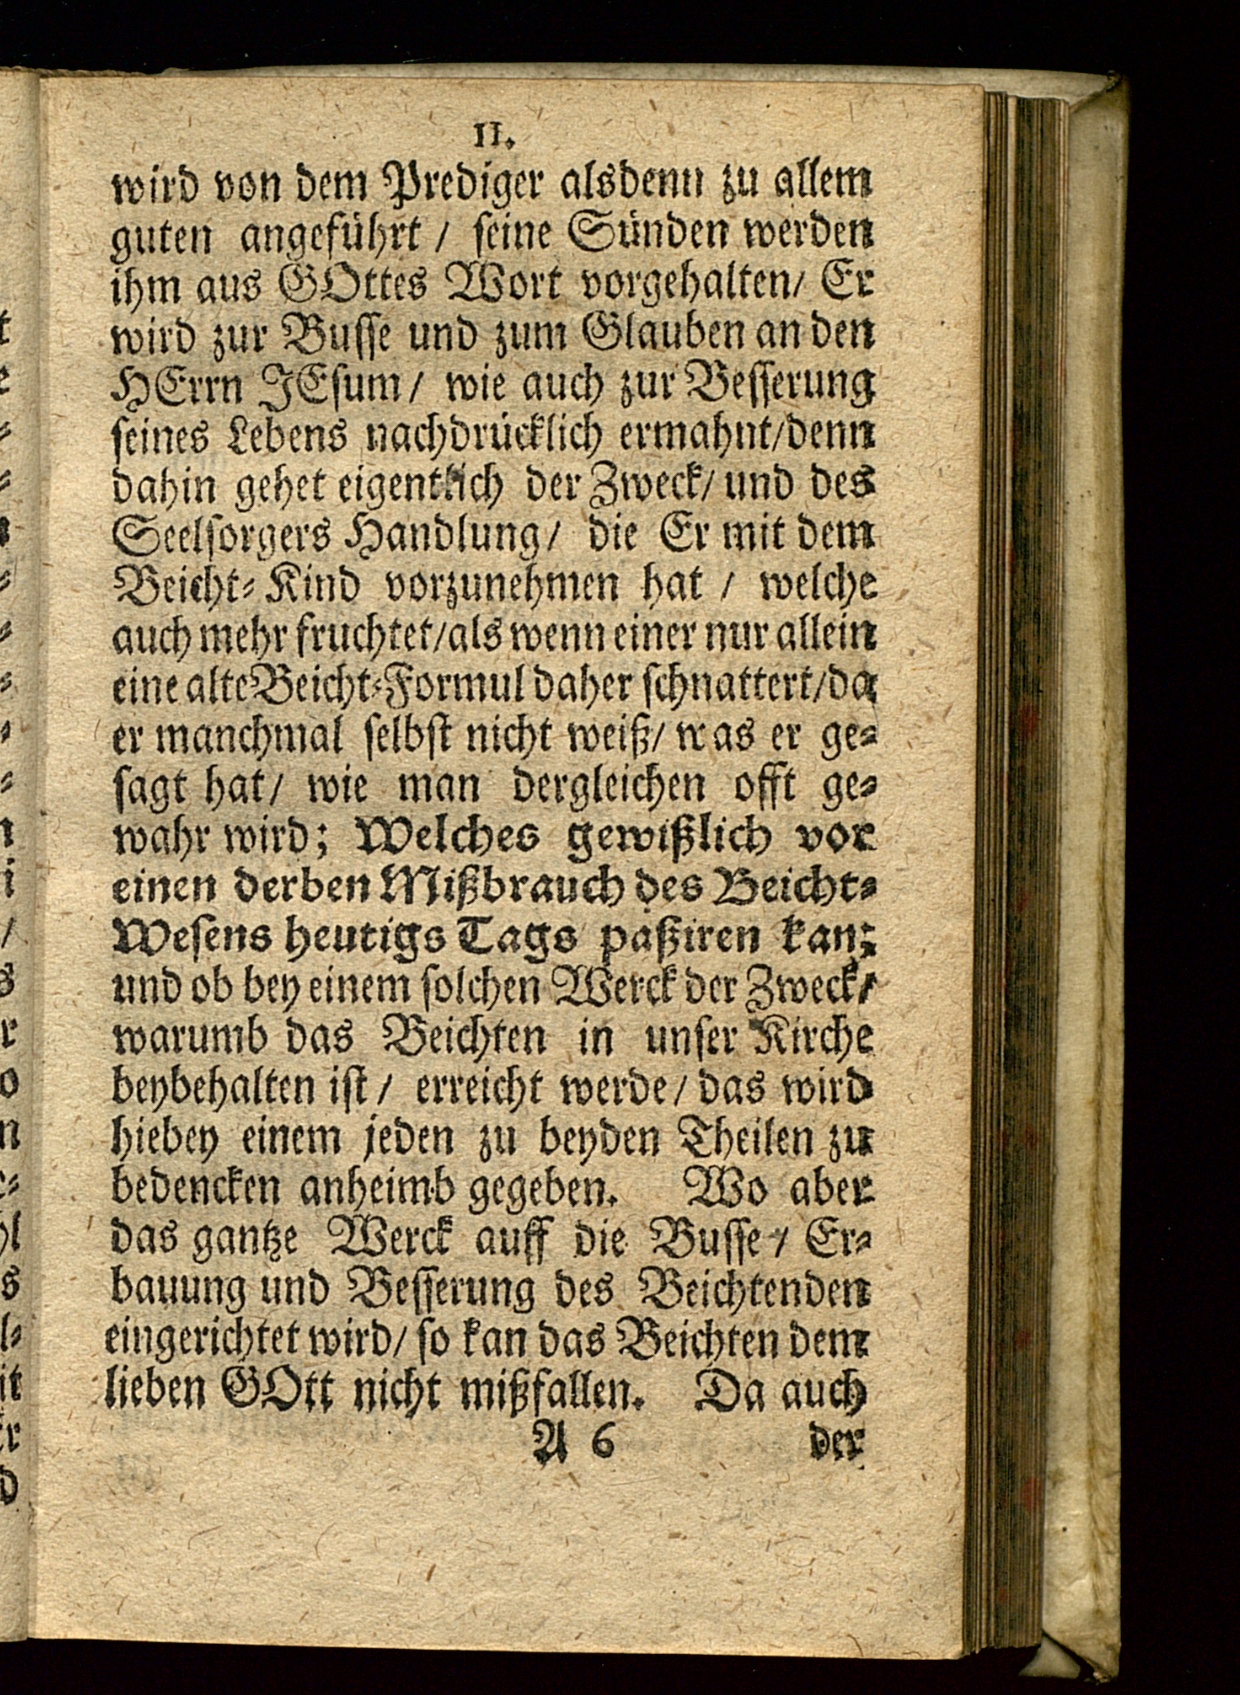 11.
wird von dem Prediger alsdenn zu allem
guten angeführt / seine Sünden werden
ihm aus GOttes Wort vorgehalten/ Er
wird zur Busse und zum Glauben an den
HErrn JEsum/ wie auch zur Besserung
seines Lebens nachdrücklich ermahnt/denn
dahin gehet eigentlich der Zweck/ und des
Seelsorgers Handlung/ die Er mit dem
Beicht-Kind vorzunehmen hat / welche
auch mehr fruchtet/als wenn einer nur allein
eine alte Beicht-Formul daher schnattert/da
er manchmal selbst nicht weiß/ was er ge-
sagt hat/ wie man dergleichen offt ge-
wahr wird; Welches gewißlich vor
einen derben Mißbrauch des Beicht-
Wesens heutigs Tags paßiren kan;
und ob bey einem solchen Werck der Zweck/
warumb das Beichten in unser Kirche
beybehalten ist / erreicht werde / das wird
hiebey einem jeden zu beyden Theilen zu
bedencken anheimb gegeben. Wo aber
das gantze Werck auff die Busse / Er-
bauung und Besserung des Beichtenden
eingerichtet wird/ so kan das Beichten dem
lieben GOtt nicht mißfallen. Da auch
A 6 der